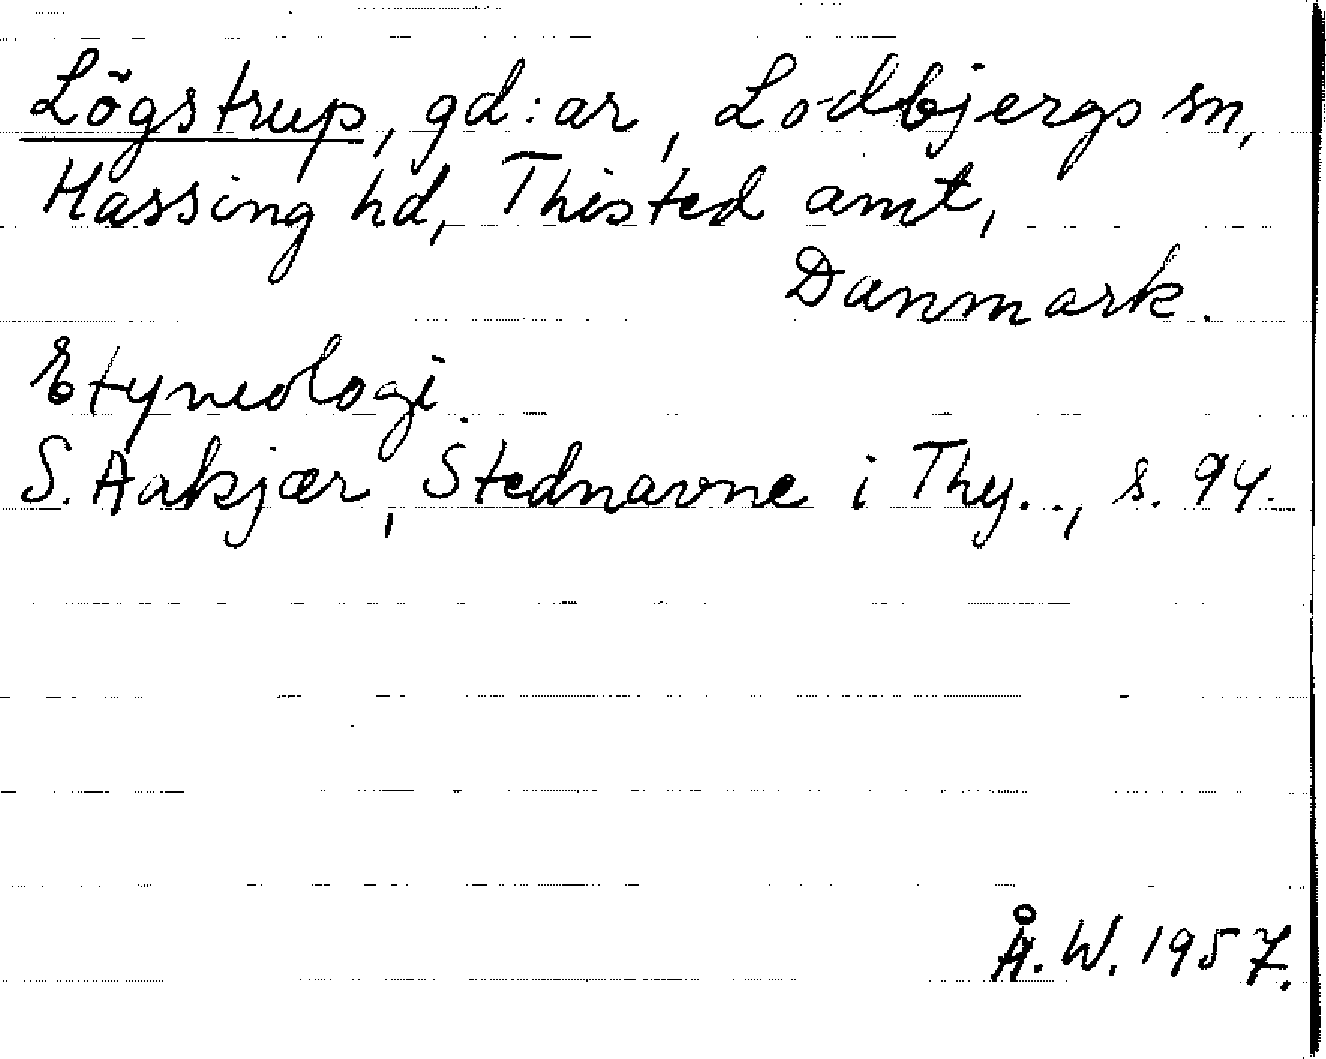 Lögstrup, gd:ar, Lodbjergs sn,
Hassing hd, Thisted amt,
Danmark.
Etymologi.
S. Aakjær, Stednavne i Thy.., s. 94.
Å.W. 1957.